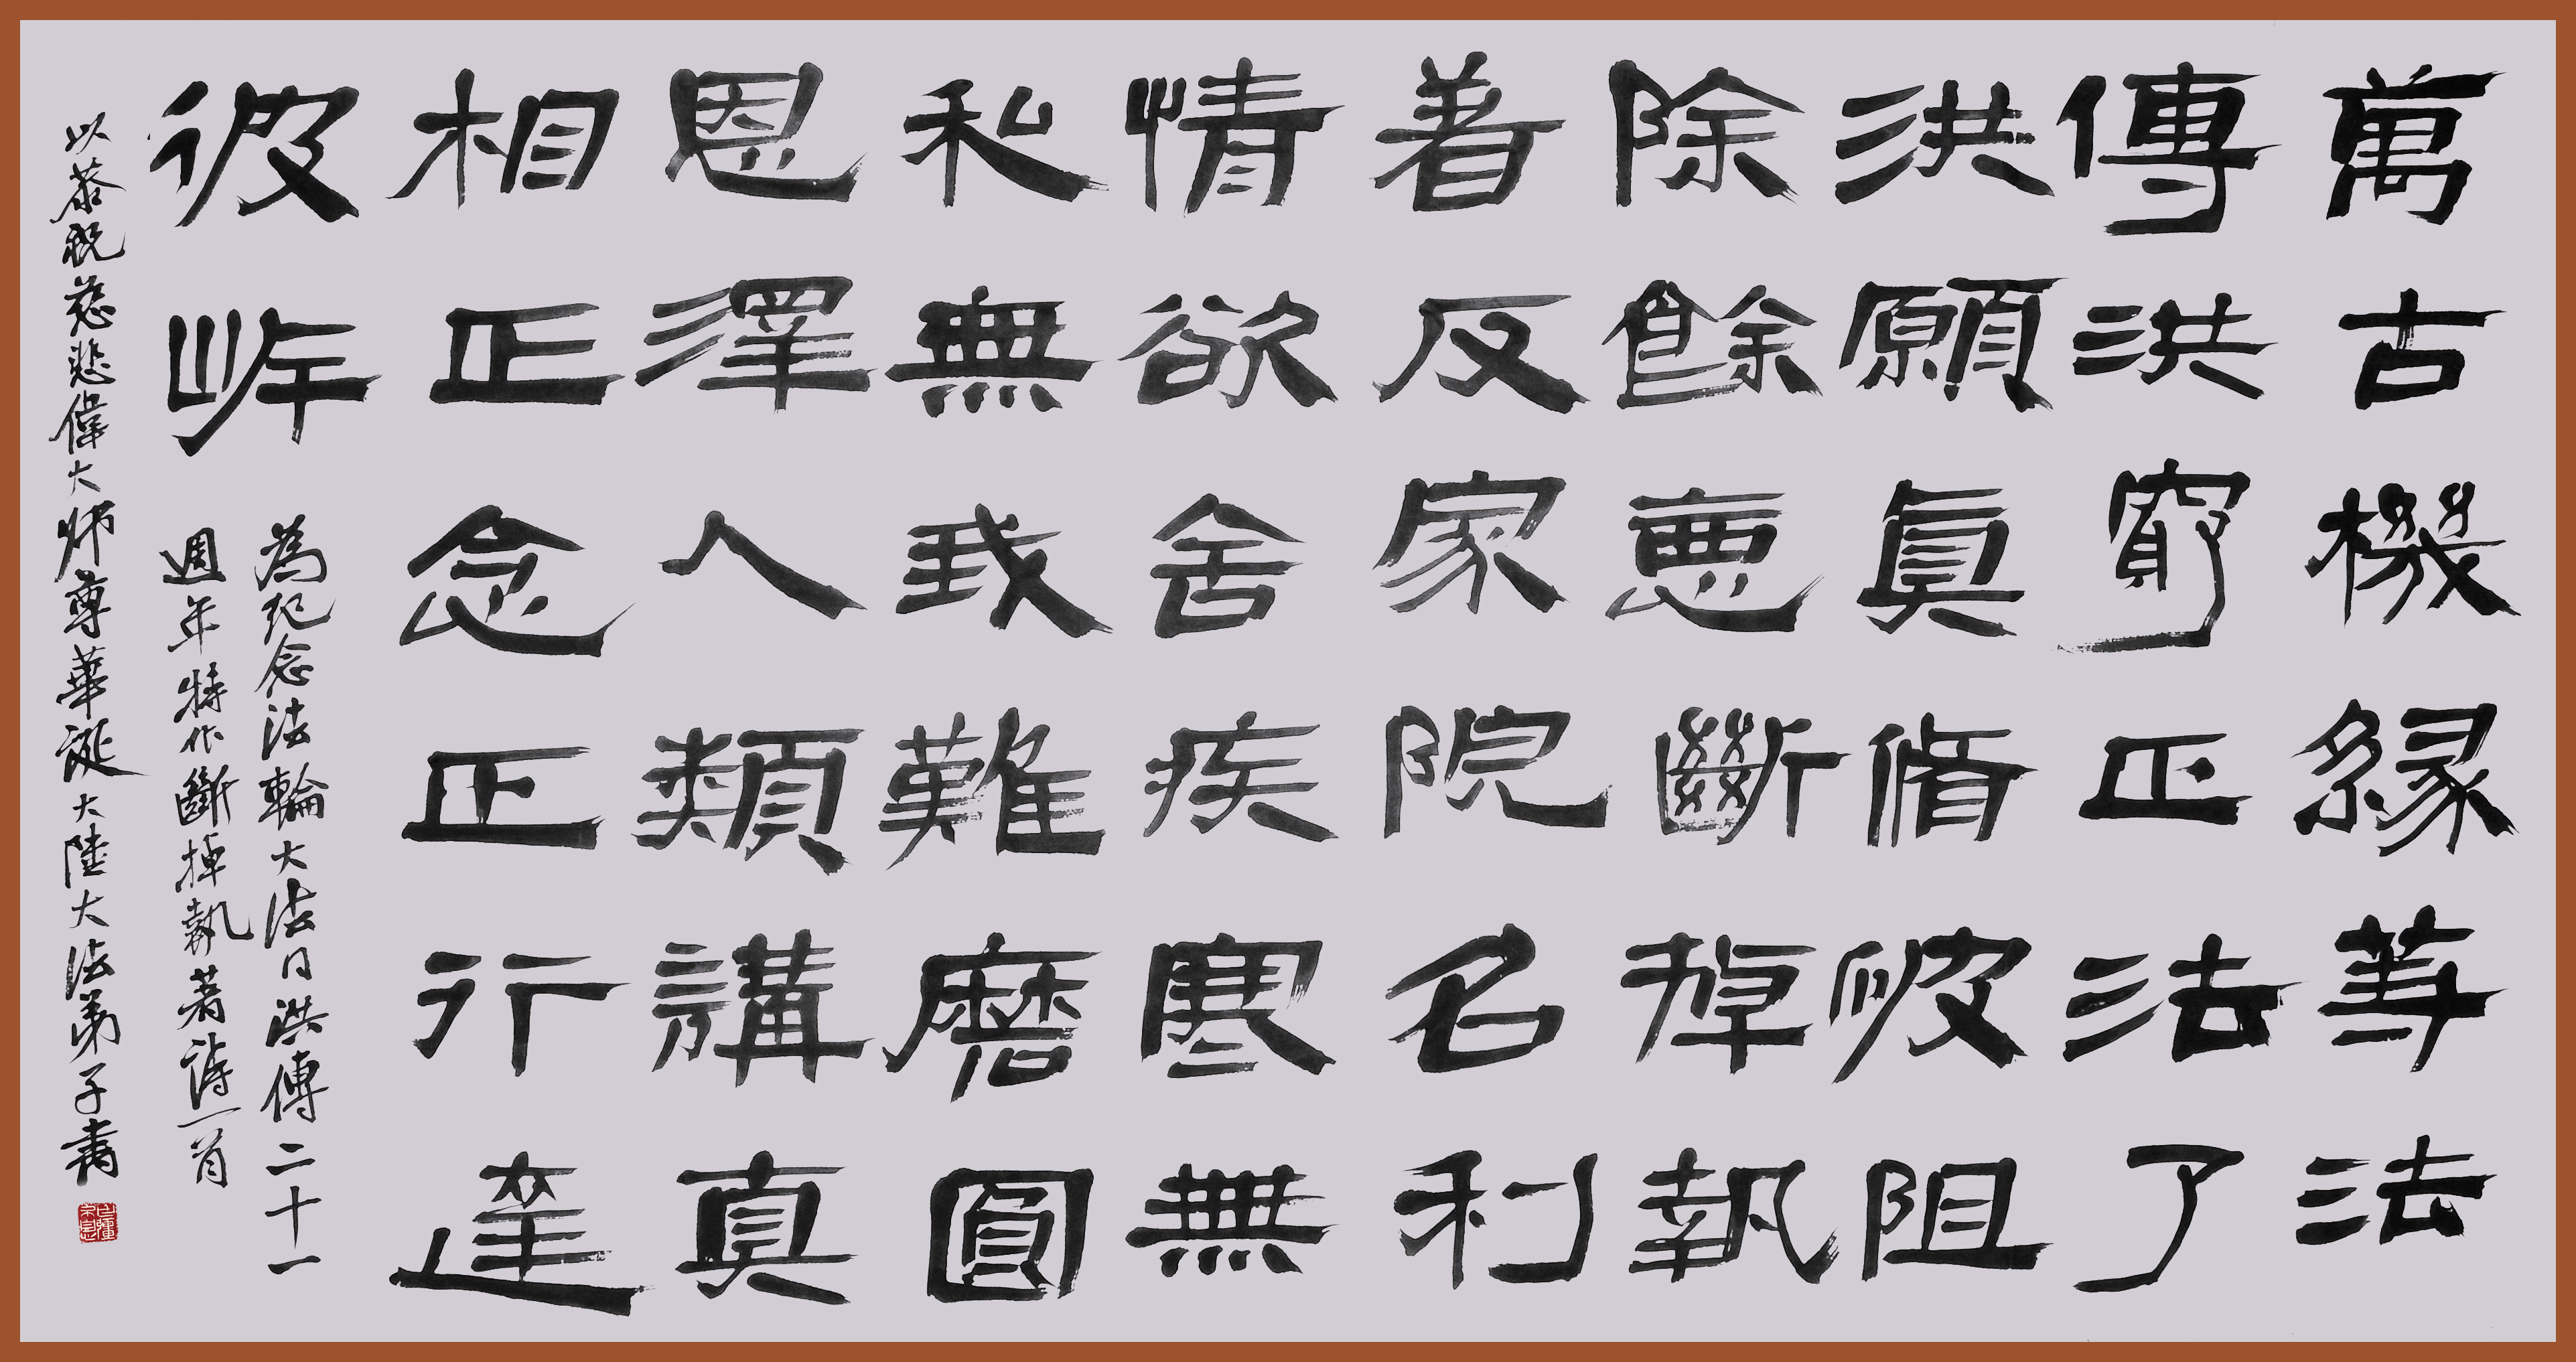 萬古機緣等法
傳洪窮正法了
洪願眞脩破阻
除餘惡斷掉執
著反家院名利
情欲舍疾寒無
私無我難磨圓
恩澤人類講真
相正念正行達
彼岸
為紀念法輪大法日洪傳二十一
週年特作斷掉執著詩一首
以恭祝慈悲偉大师尊華誕大陸大法弟子書